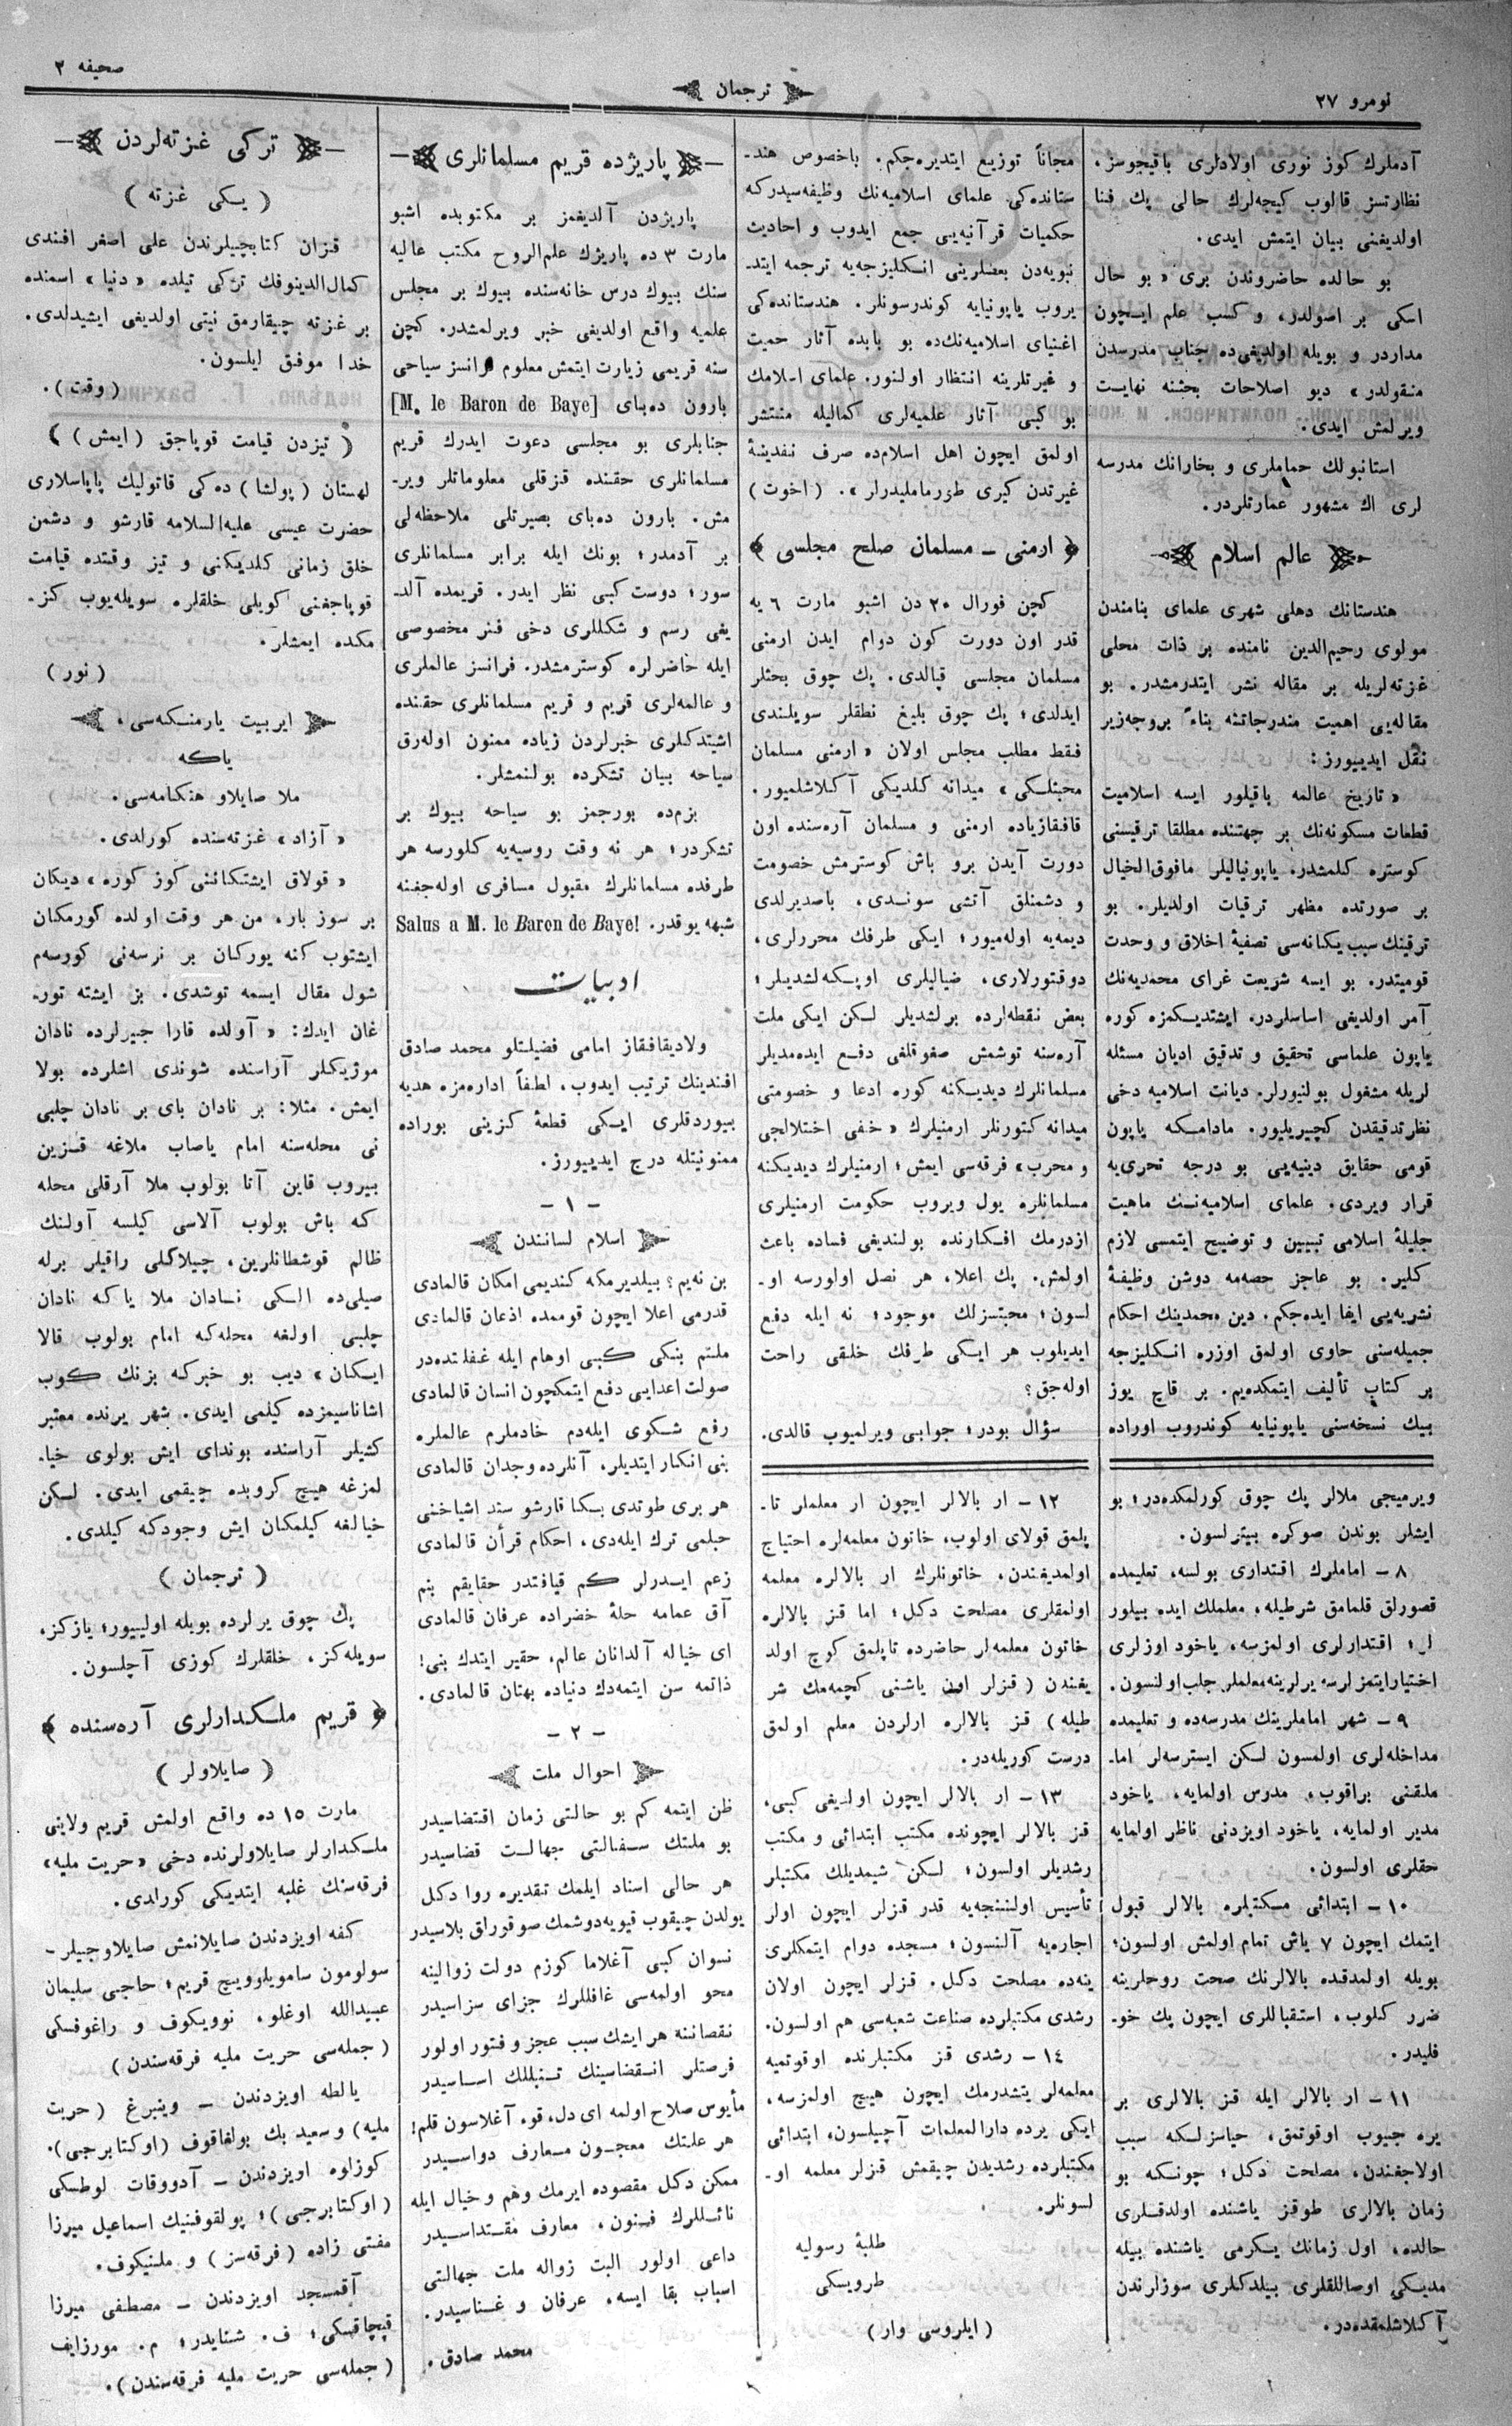 نومرو ٢٧
ترجمان
صحیفه ٣
آدملرك كوز نوری اولادلری باقیجوسز،
نظارتسز قالوب كیجه‌لرك حالی پك فنا
اولدیغنی بیان ایتمش ایدی.
بو حالده حاضروندن بری « بو حال
اسكی بر اصولدر، و كسب علم ایچون
مداردر و بویله اولدیغی‌ده جناب مدرسدن
منقولدر» دیو اصلاحات بحثنه نهایت
ویرلمش ایدی.
استانبولك حماملری و بخارانك مدرسه
لری اك مشهور عمارتلردر.
عالم اسلام
هندستانك دهلی شهری علمای بنامندن
مولوی رحیم‌الدین نامنده بر ذات محلی
غزته‌لریله بر مقاله نشر ایتدرمشدر. بو
مقاله‌یی اهمیت مندرجاتنه بناءً بروجه‌زیر
نقل ایدییورز:
« تاریخ عالمه باقیلور ایسه اسلامیت
قطعات مسكونه‌نك بر جهتنده مطلقا ترقیسنی
كوستره كلمشدر. یاپونیالیلر مافوق‌الخیال
بر صورتده مظهر ترقیات اولدیلر. بو
ترقینك سبب یكانه‌سی تصفیهٔ اخلاق و وحدت
قومیتدر. بو ایسه شریعت غرای محمدیه‌نك
آمر اولدیغی اساسلردر. ایشتدیكمزه كوره
یاپون علماسی تحقیق و تدقیق ادیان مسئله
لریله مشغول بولنیورلر. دیانت اسلامیه دخی
نظرتدقیقدن كچیریلیور. مادامكه یاپون
قومی حقایق دینیه‌یی بو درجه تحری‌یه
قرار ویردی. علمای اسلامیه‌نك ماهیت
جلیلهٔ اسلامی تبیین و توضیح ایتمسی لازم
كلیر. بو عاجز حصه‌مه دوشن وظیفهٔ
نشریه‌یی ایفا ایده‌جكم. دین محمدینك احكام
جمیله‌سنی حاوی اولمق اوزره انكلیزجه
بر كتاب تألیف ایتمكده‌یم. بر قاچ یوز
بیك نسخه‌سنی یاپونیایه كوندروب اوراده
مجاناً توزیع ایتدیره‌جكم. باخصوص هند-
ستانده‌كی علمای اسلامیه‌نك وظیفه‌سیدركه
حكمیات قرآنیه‌یی جمع ایدوب و احادیث
نبویه‌دن بعضلرینی انكلیزجه‌یه ترجمه ایتد-
یروب یاپونیایه كوندرسونلر. هندستانده‌كی
اغنیای اسلامیه‌نك‌ده بو بابده آثار حمیت
و غیرتلرینه انتظار اولنور. علمای اسلامك
بو كبی آثار علمیه‌لری كمالیله منتشر
اولمق ایچون اهل اسلام‌ده صرف نقدینهٔ
غیرتدن كیری طورماملیدرلر». (اخوت)
ارمنی – مسلمان صلح مجلسی
كچن فورال ٢٠ دن اشبو مارت ٦ یه
قدر اون دورت كون دوام ایدن ارمنی
مسلمان مجلسی قپالدی. پك چوق بحثلر
ایدلدی؛ پك چوق بلیغ نطقلر سویلندی
فقط مطلب مجلس اولان « ارمنی مسلمان
محبتلكی » میدانه كلدیكی آكلاشلمیور.
قافقازیاده ارمنی و مسلمان آره‌سنده اون
دورت آیدن برو باش كوسترمش خصومت
و دشمنلق آتشی سوندی، باصدیرلدی
دیمه‌یه اوله‌میور؛ ایكی طرفك محررلری،
دوقتورلاری، ضیالیلری اوپكه‌لشدیلر؛
بعض نقطه‌لرده برلشدیلر لكن ایكی ملت
آره‌سنه توشمش صغوقلغی دفع ایده‌مدیلر
مسلمانلرك دیدیكنه كوره ادعا و خصومتی
میدانه كتورنلر ارمنیلرك « خفی اختلالجی
و محرب» فرقه‌سی ایمش؛ ارمنیلرك دیدیكنه
مسلمانلره یول ویروب حكومت ارمنیلری
ازدرمك افكارنده بولندیغی فساده باعث
اولمش. پك اعلا، هر نصل اولورسه او-
لسون؛ محبتسزلك موجود؛ نه ایله دفع
ایدیلوب هر ایكی طرفك خلقی راحت
اوله‌جق؟
سؤال بودر؛ جوابی ویرلمیوب قالدی.
ویرمیجی ملالر پك چوق كورلمكده‌در؛ بو
ایشلر بوندن صوكره بیتزلسون.
٨ – اماملرك اقتداری بولسه، تعلیمده
قصورلق قلمامق شرطیله، معلملك ایده بیلور
لر؛ اقتدارلری اولمزسه، یاخود اوزلری
اختیارایتمزلرسه یرلرینه‌معلملر جلب‌اولنسون.
٩ – شهر اماملرینك مدرسه‌ده و تعلیمده
مداخله‌لری اولمسون لكن ایسترسه‌لر اما-
ملقنی براقوب، مدرس اولمایه، یاخود
مدیر اولمایه، یاخود اویزدنی ناظر اولمایه
حقلری اولسون.
١٠ – ابتدائی مكتبلره بالالر قبول
ایتمك ایچون ٧ یاش تمام اولمش اولسون؛
بویله اولمدقده بالالرنك صحت روحلرینه
ضرر كلوب، استقباللری ایچون پك خو-
فلیدر.
١١ – ار بالالر ایله قز بالالری بر
یره جیوب اوقوتمق، حیاسزلكه سبب
اولاجغندن، مصلحت دكل؛ چونكه بو
زمان بالالری طوقز یاشنده اولدقلری
حالده، اول زمانك یكرمی یاشنده بیله
مدیكی اوصاللقلری بیلدكلری سوزلرندن
آكلاشلمقده‌در.
١٢ – ار بالالر ایچون ار معلملر تا-
پلمق قولای اولوب، خاتون معلمه‌لره احتیاج
اولمدیغندن، خاتونلرك ار بالالره معلمه
اولمقلری مصلحت دكل؛ اما قز بالالره
خاتون معلمه‌لر حاضرده تاپلمق كوچ اولد
یغندن (قزلر اون یاشنی كچمه‌مك شر
طیله) قز بالالره ارلردن معلم اولمق
درست كوریله‌در.
١٣ – ار بالالر ایچون اولدیغی كبی،
قز بالالر ایچونده مكتب ابتدائی و مكتب
رشدیلر اولسون؛ لكن شیمدیلك مكتبلر
تأسیس اولننجه‌یه قدر قزلر ایچون اولر
اجاره‌یه آلنسون؛ مسجده دوام ایتمكلری
ینه‌ده مصلحت دكل. قزلر ایچون اولان
رشدی مكتبلرده صناعت شعبه‌سی هم اولسون.
١٤ – رشدی قز مكتبلرنده اوقوتمیه
معلمه‌لر یتشدرمك ایچون هیچ اولمزسه،
ایكی یرده دارالمعلمات آچیلسون، ابتدائی
مكتبلرده رشدیدن چیقمش قزلر معلمه او-
لسونلر.
طلبهٔ رسولیه
طرویسكی
(ایلروسی وار)
پاریژده قریم مسلمانلری
پاریژدن آلدیغمز بر مكتوبده اشبو
مارت ٣ ده پاریژك علم‌الروح مكتب عالیه
سنك بیوك درس خانه‌سنده بیوك بر مجلس
علمیه واقع اولدیغی خبر ویرلمشدر. كچن
سنه قریمی زیارت ایتمش معلوم فرانسز سیاحی
بارون ده‌بای [M. le Baron de Baye]
جنابلری بو مجلسی دعوت ایدرك قریم
مسلمانلری حقنده قزقلی معلوماتلر ویر-
مش. بارون ده‌بای بصیرتلی ملاحظه‌لی
بر آدمدر؛ بونك ایله برابر مسلمانلری
سور؛ دوست كبی نظر ایدر. قریمده آلد-
یغی رسم و شكللری دخی فنر مخصوصی
ایله حاضرلره كوسترمشدر. فرانسز عالملری
و عالمه‌لری قریم و قریم مسلمانلری حقنده
اشیتدكلری خبرلردن زیاده ممنون اوله‌رق
سیاحه بیان تشكرده بولنمشلر.
بزم‌ده بورجمز بو سیاحه بیوك بر
تشكردر؛ هر نه وقت روسیه‌یه كلورسه هر
طرفده مسلمانلرك مقبول مسافری اوله‌جغنه
شبهه یوقدر. Salus a M. le Baron de Baye!
ادبیات
ولادیقافقاز امامی فضیلتلو محمد صادق
افندینك ترتیب ایدوب، لطفاً اداره‌مزه هدیه
بیوردقلری ایكی قطعهٔ كزینی بوراده
ممنونیتله درج ایدییورز.
– ١ –
اسلام لسانندن
بن نه‌یم؟ بیلدیرمكه كندیمی امكان قالمادی
قدرمی اعلا ایچون قوممده اذعان قالمادی
ملتم بنكی كبی اوهام ایله غفلتده‌در
صولت اعدایی دفع ایتمكچون انسان قالمادی
رفع شكوی ایله‌دم خادملرم عالملره
بنی انكار ایتدیلر، آنلرده وجدان قالمادی
هر بری طوتدی بكا قارشو سند اشباخنی
حبلمی ترك ایله‌دی، احكام قرآن قالمادی
زعم ایدرلر كم قیافتدر حقایقم بنم
آق عمامه حلهٔ خضراده عرفان قالمادی
ای خیاله آلدانان عالم، حقیر ایتدك بنی!
ذاتمه سن ایتمه‌دك دنیاده بهتان قالمادی.
– ٢ –
احوال ملت
ظن ایتمه كم بو حالتی زمان اقتضاسیدر
بو ملتك سفالتی جهالت قضاسیدر
هر حالی اسناد ایلمك تقدیره روا دكل
یولدن چیقوب قیویه‌دوشمك صوقوراق بلاسیدر
نسوان كبی آغلاما كوزم دولت زوالینه
محو اولمه‌سی غافللرك جزای سزاسیدر
نقصاننه هر ایشك سبب عجز و فتور اولور
فرصتلر انقضاسینك تنبللك اساسیدر
مأیوس صلاح اولمه ای دل، قوه آغلاسون قلم!
هر علتك معجون معارف دواسیدر
ممكن دكل مقصوده ایرمك وهم و خیال ایله
نائللرك فنون، معارف مقتداسیدر
داعی اولور البت زواله ملت جهالتی
اسباب بقا ایسه، عرفان و غناسیدر.
محمد صادق.
تركی غزته‌لردن
(یكی غزته)
قزان كتابچیلرندن علی اصغر افندی
كمال‌الدینوفك تركی تیلده « دنیا » اسمنده
بر غزته چیقارمق نیتی اولدیغی ایشیدلدی.
خدا موفق ایلسون.
(وقت).
(تیزدن قیامت قوپاجق (ایمش))
لهستان (پولشا) ده‌كی قاتولیك پاپاسلاری
حضرت عیسی علیه‌السلامه قارشو و دشمن
خلق زمانی كلدیكنی و تیز وقتده قیامت
قوپاجغنی كویلی خلقلره سویله‌یوب كز-
مكده ایمشلر.
(نور)
ایربیت یارمنكه‌سی،
یاكه
ملا صایلاو هنكامه‌سی.
« آزاد» غزته‌سنده كورلدی.
« قولاق ایشتكاننی كوز كوره» دیكان
بر سوز بار، من هر وقت اولده كورمكان
ایشتوب كنه یوركان بر نرسه‌نی كورسه‌م
شول مقال ایسمه توشدی. بز ایشته تور-
غان ایدك: « آولده قارا جیرلرده نادان
موژیكلر آراسنده شوندی اشلرده بولا
ایمش. مثلا: بر نادان بای بر نادان چلبی
نی محله‌سنه امام یاصاب ملاغه قزین
بیروب قاین آتا بولوب ملا آرقلی محله
كه باش بولوب آلاسی كیلسه آولنك
ظالم قوشطانلرین، چیلاكلی راقیلر برله
صیلی‌ده الكی نادان ملا یاكه نادان
چلبی اولغه محله‌كه امام بولوب قالا
ایكان» دیب بو خبركه بزنك كوب
اشاناسیمزده كیلمی ایدی. شهر یرنده معتبر
كشیلر آراسنده بوندای ایش بولوی خیا-
لمزغه هیچ كروبده چیقمی ایدی. لكن
خیالغه كیلمكان ایش وجودكه كیلدی.
(ترجمان)
پك چوق یرلرده بویله اولییور؛ یازكز،
سویله‌كز، خلقلرك كوزی آچلسون.
قریم ملكدارلری آره‌سنده
(صایلاولر)
مارت ١٥ ده واقع اولمش قریم ولایتی
ملكدارلر صایلاولرنده دخی «حریت ملیه»
فرقه‌سنك غلبه ایتدیكی كورلدی.
كفه اویزدندن صایلانمش صایلاوجیلر –
سولومون سامویلوویچ قریم؛ حاجی سلیمان
عبیدالله اوغلو، نوویكوف و راغوفسكی
(جمله‌سی حریت ملیه فرقه‌سندن)
یالطه اویزدندن – وینبرغ (حریت
ملیه) و سعید بك بولغاقوف (اوكتابرجی).
كوزلوه اویزدندن – آدووقات لوطسكی
(اوكتابرجی)؛ پولقوفنیك اسماعیل میرزا
مفتی زاده (فرقه‌سز) و ملنیكوف.
آقمسجد اویزدندن – مصطفی میرزا
قپچاقسكی؛ ف. شتایدر؛ م. مورزایف
(جمله‌سی حریت ملیه فرقه‌سندن).